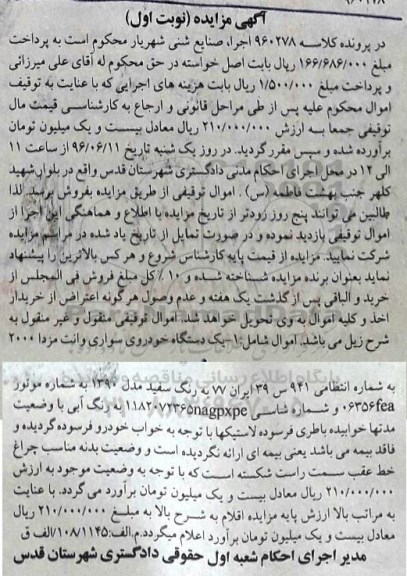 آگهی مزایده (نوبت اول)
در پرونده کلاسه ۹۶۰۲۷۸ اجرا، صنایع شنی شهریار محکوم است به پرداخت
مبلغ ۱۶۶/۶۸۶/۰۰۰ ریال بابت اصل خواسته در حق محکوم له آقای علی میرزائی
و پرداخت مبلغ ۱/۵۰۰/۰۰۰ ریال بابت هزینه های اجرایی که با عنایت به توقیف
اموال محکوم علیه پس از طی مراحل قانونی و ارجاع به کارشناسی قیمت مال
توقیفی جمعا به ارزش ۲۱۰/۰۰۰/۰۰۰ ریال معادل بیست و یک میلیون تومان
برآورده شده و سپس مقرر گردید. در روز یک شنبه تاریخ ۹۶/۰۶/۱۱ از ساعت ۱۱
الی ۱۲ در محل اجرای احکام مدنی دادگستری شهرستان قدس واقع در بلوار شهید
کلهر جنب بهشت فاطمه (س) . اموال توقیفی از طریق مزایده بفروش برسد. لذا
طالبین می توانند پنج روز زودتر از تاریخ مزایده با اطلاع و هماهنگی این اجرا از
اموال توقیفی بازدید نموده و در صورت تمایل از تاریخ یاد شده در مراسم مزایده
شرکت نمایید. مزایده از قیمت پایه کارشناس شروع و هر کس بالاترین را پیشنهاد
نماید بعنوان برنده مزایده شناخته شده و ۱۰ ٪ کل مبلغ فروش فی المجلس از
خرید و الباقی پس از گذشت یک هفته و عدم وصول هر گونه اعتراض از خریدار
اخذ و کلیه اموال به وی تحویل خواهد شد. اموال توقیفی منقول و غیر منقول به
شرح زیل می باشد. اموال شامل: ۱- یک دستگاه خودروی سواری وانت مزدا ۲۰۰۰
به شماره انتظامی ۹۴۱ س ۳۹ ایران ۷۷ به رنگ سفید مدل ۱۳۹۰ به شماره موتور
۰۶۳۵۶fea و شماره شاسی nagpxpe به رنگ آبی با وضعیت
مدتها خوابیده باطری فرسوده لاستیکها با توجه به خواب خودرو فرسوده گردیده و
فاقد بیمه می باشد یعنی بیمه ای ارائه نگردیده است و وضعیت بدنه مناسب چراغ
خط عقب سمت راست شکسته است که با توجه به وضعیت موجود به ارزش
۲۱۰/۰۰۰/۰۰۰ ریال معادل بیست و یک میلیون تومان برآورد می گردد. با عنایت
به مراتب بالا ارزش پایه مزایده اقلام به شرح بالا به مبلغ ۲۱۰/۰۰۰/۰۰۰ ریال
معادل بیست و یک میلیون تومان برآورد اعلام میگردد.م.الف:۱۰۸/۱۱۴۵/الف ق
مدیر اجرای احکام شعبه اول حقوقی دادگستری شهرستان قدس